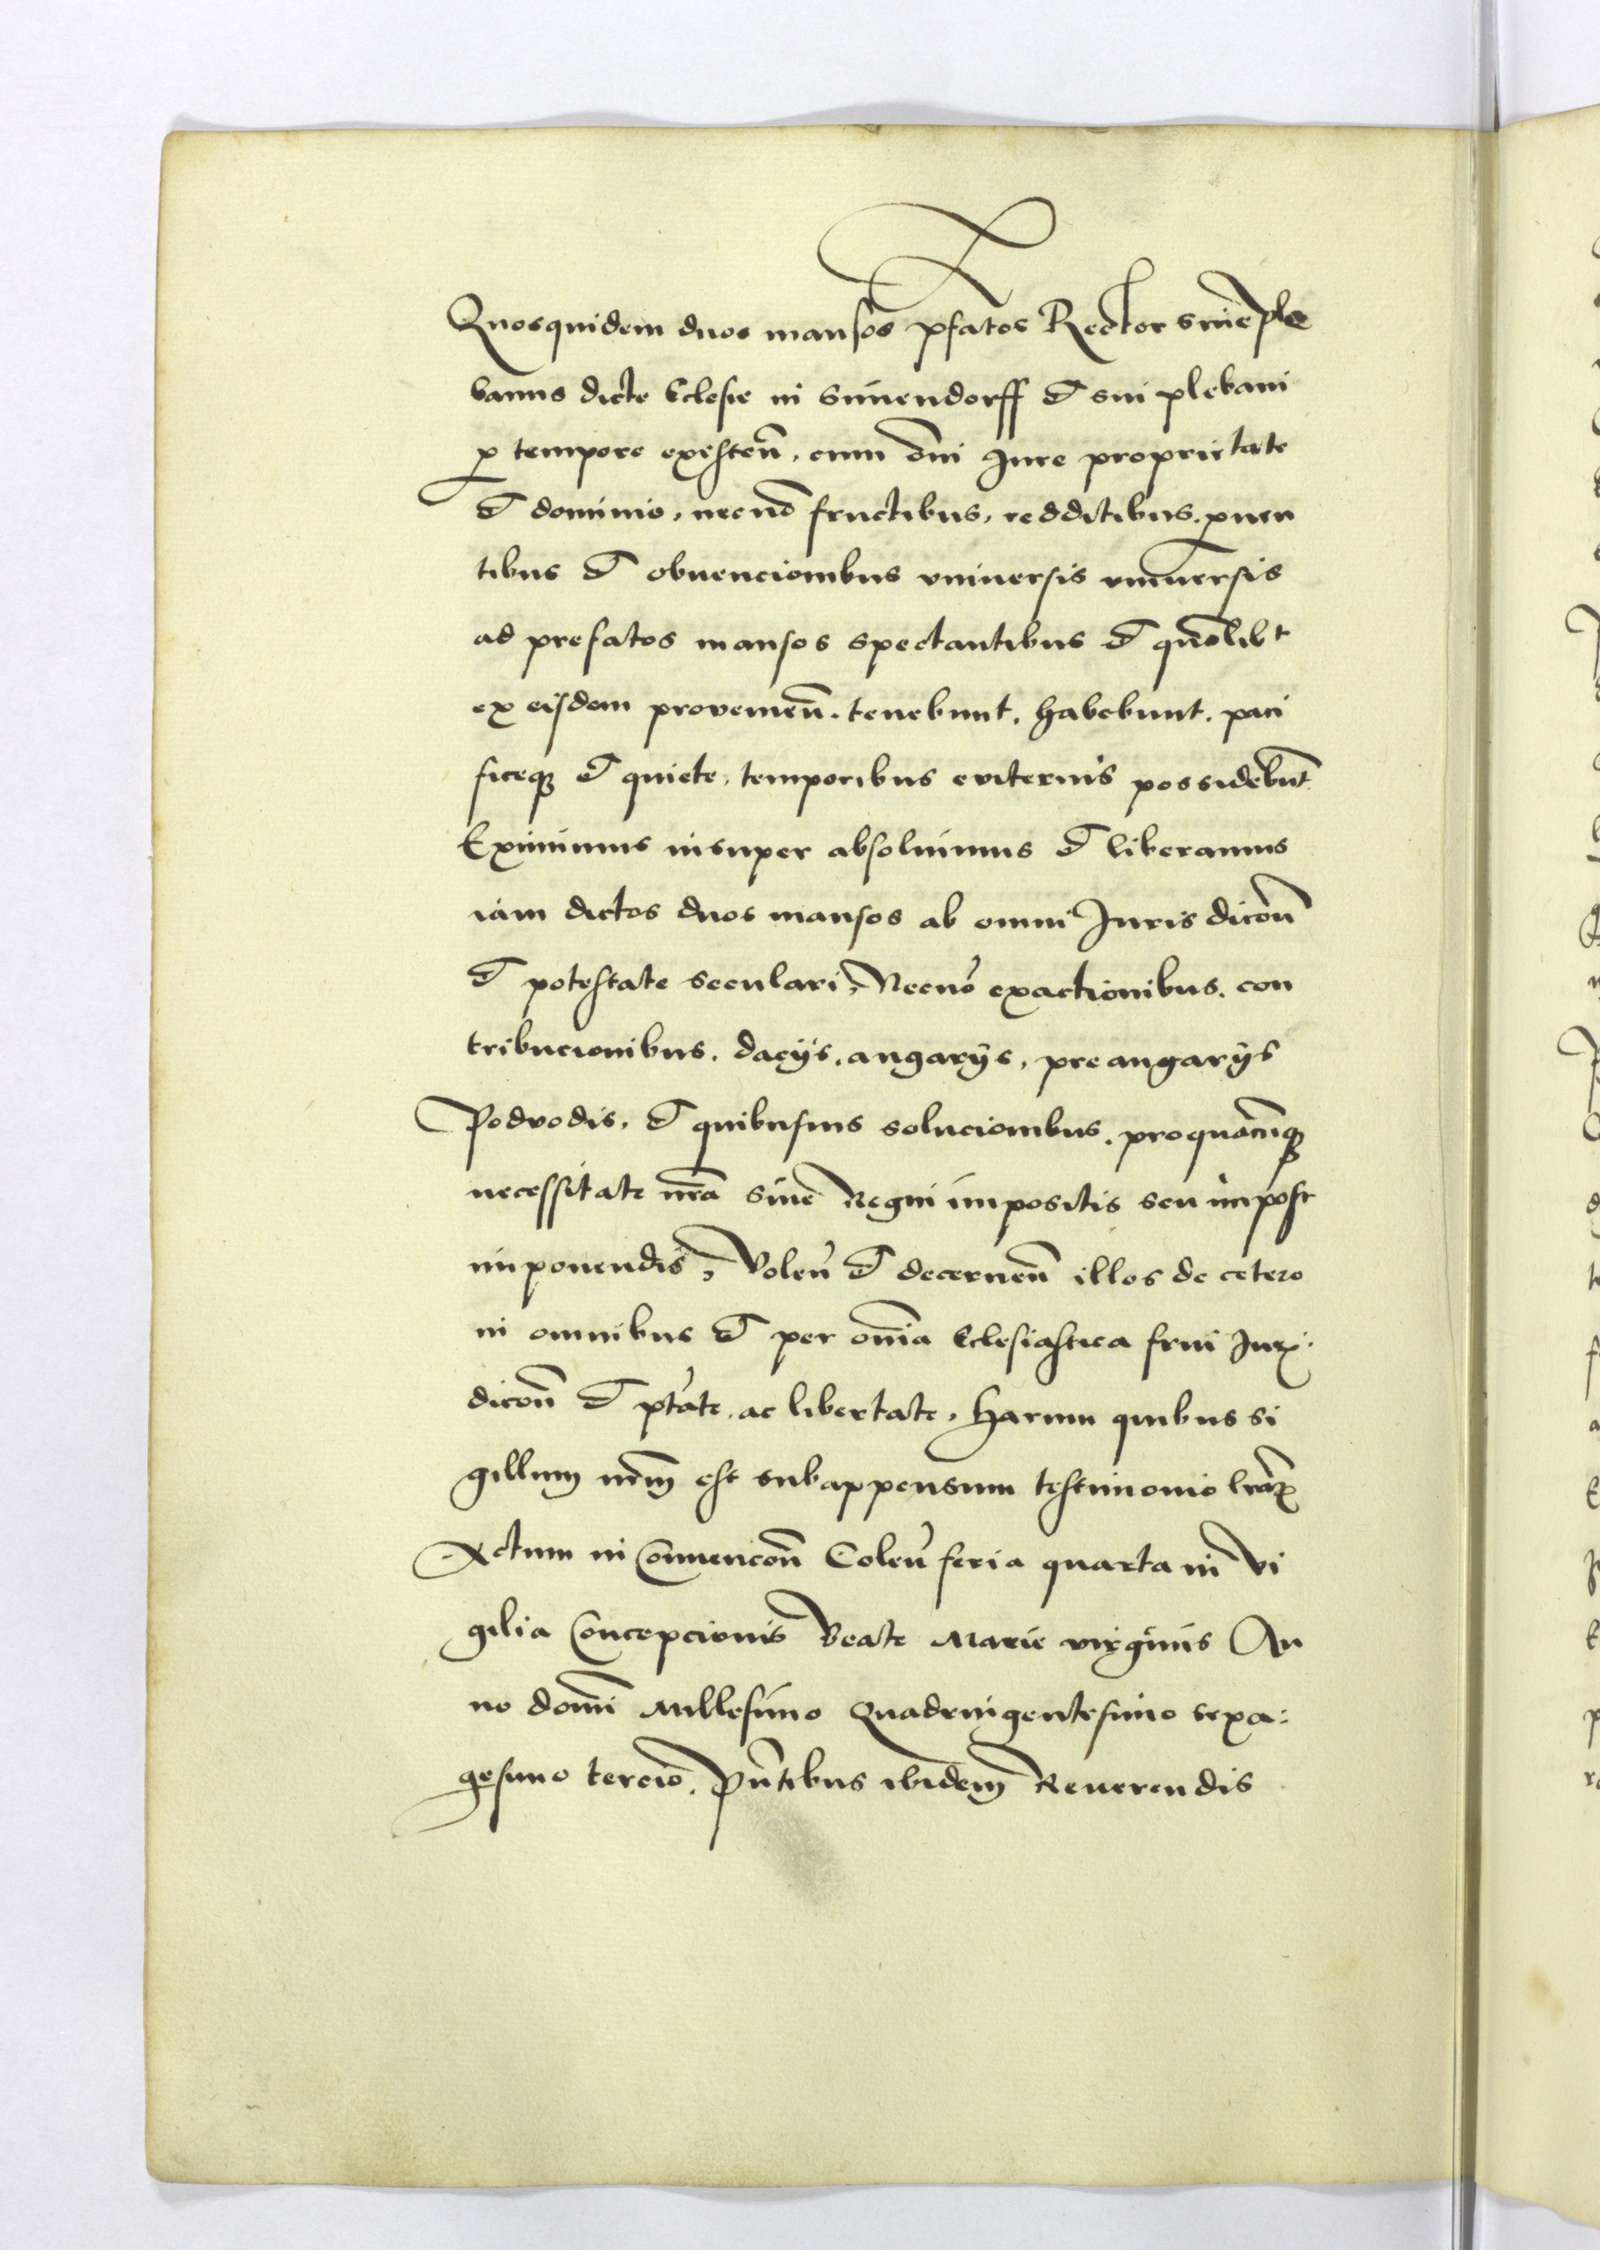 Quosquidem duos mansos pfatos Rector siue ple
banus dicte Eclesie in Sunendorff et sui plebani
p tempore existen̄, cum om̄i Iure proprietate
et dominio, necnō fructibus, redditibus, prouen
tibus et obuencionibus vniuersis vniuersis
ad prefatos mansos spectantibus et quōlibt
ex eisdem provenien̄. tenebunt, habebunt, paci
ficeqȝ et quiete, temporibus eviternis possidebūt
Eximimus insuper absoluimus et liberamus
iam dictos duos mansos ab omni Iuris dicōn̄
et potestate seculari, Necnō exactionibus, con
tribucionibus, dacijs, angarijs, preangarijs
Podvodis, et quibusuis solucionibus, proquacūqȝ
necessitate nr̄a siue Regni impositis seu īmpost
imponendis, Volen̄ et decernen̄ illos de cetero
in omnibus et per om̄ia Eclesiastica frui Iurꝭ
dicōn̄ et ptāte, ac libertate, Harum quibus si
gillum nrm̄ est subappensum testimonio lr̄aꝝ
Actum in Conuencōn̄ Colen̄ feria quarta in vi
gilia Concepcionis Beate Marie virginis An
no domī Millesimo Quadringentesimo sexa:
gesimo tercio, Pn̄tibus ibidem Reuerendis